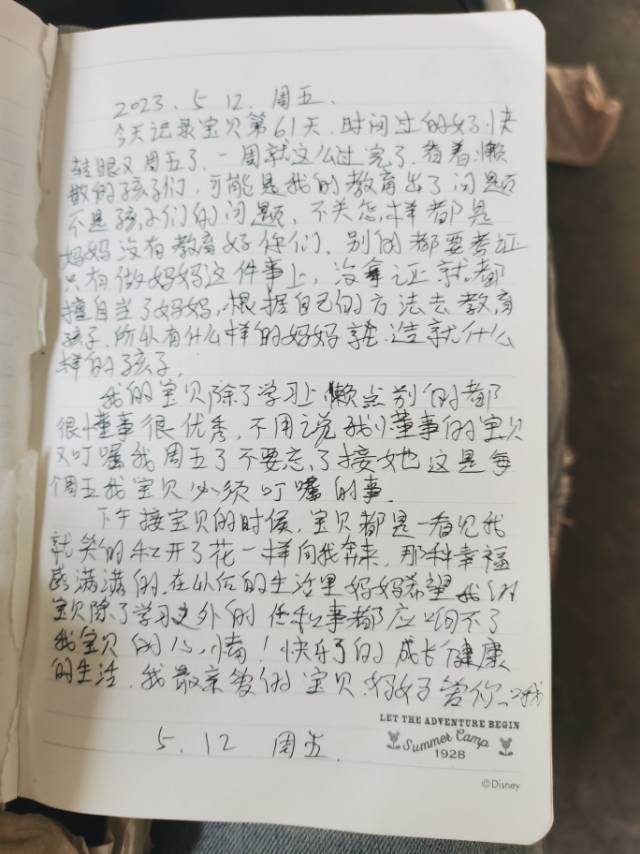 2023.5 12.周五.
今天记录宝贝第61天.时间过的好快
转眼又周五了.一周就这么过完了.看着懒
散的孩子们,可能是我的教育出了问题
不是孩子们的问题,不关怎样都是
妈妈没有教育好你们、别的都要考证
只有做妈妈这件事上,没拿证就都
擅自当了妈妈,根据自己的方法去教育
孩子.所以有什么样的妈妈就造就什么
样的孩子.
我的宝贝除了学习上懒点别的都
很懂事很优秀,不用说我懂事的宝贝
又叮嘱我周五了不要忘了接她这是每
个周五我宝贝必须叮嘱的事.
下午接宝贝的时候,宝贝都是一看见我
就笑的和开了花一样向我奔来,那种幸福
感满满的.在以后的生活里妈妈希望我们
宝贝除了学习之外的任和事都应响不了
我宝贝的心情!快乐的成长健康
的生活.我最亲爱的宝贝.妈妈爱你
5.12 周五.
LET THE ADVENTURE BEGIN
Summer Camp
1928
©Disney